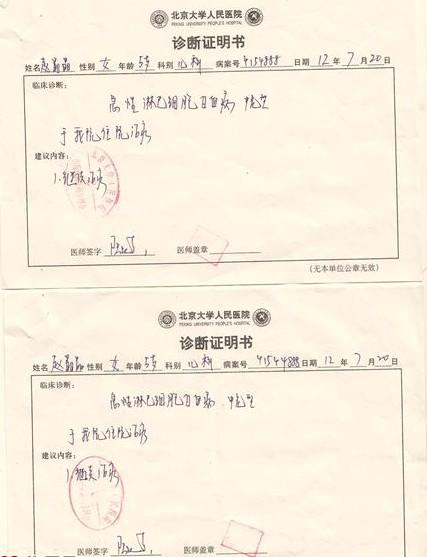 北京大学人民医院
PEKING UNIVERSITY PEOPLE'S HOSPITAL
诊断证明书
姓名 赵 性别 女 年龄 5岁 科别 儿科 病案号 4154888 日期 12 年 7 月 20 日
临床诊断:
急性淋巴细胞白血病
于我院住院治疗
建议内容:
1.继续治疗
医师签字
医师盖章
(无本单位公章无效)
北京大学人民医院
PEKING UNIVERSITY PEOPLE'S HOSPITAL
诊断证明书
姓名 赵 性别 女 年龄 5岁 科别 儿科 病案号 日期 12 年 7 月 20 日
临床诊断:
急性淋巴细胞白血病
于我院住院治疗
建议内容:
1.继续治疗
医师签字
医师盖章